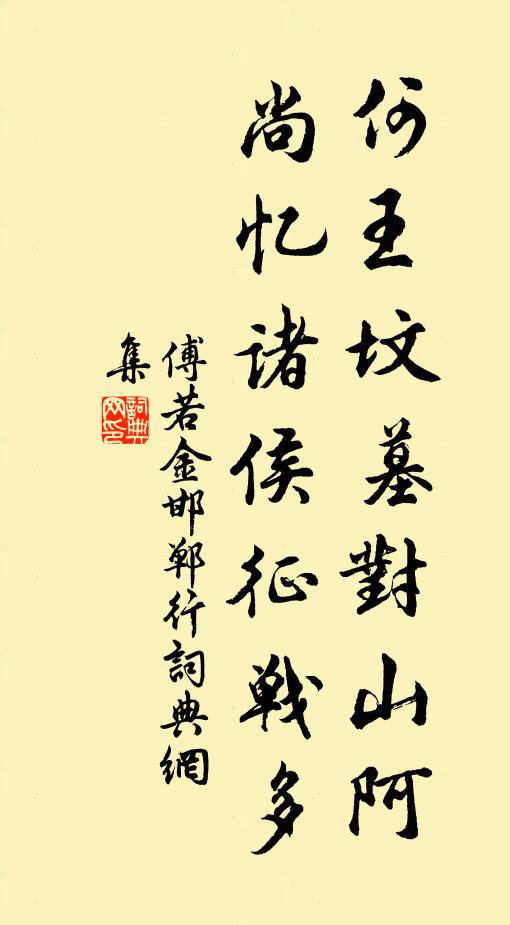 何王坟墓對山阿
尚忆诸侯征戦多
傅若金邯鄲行詞典網
集
詞典
网印